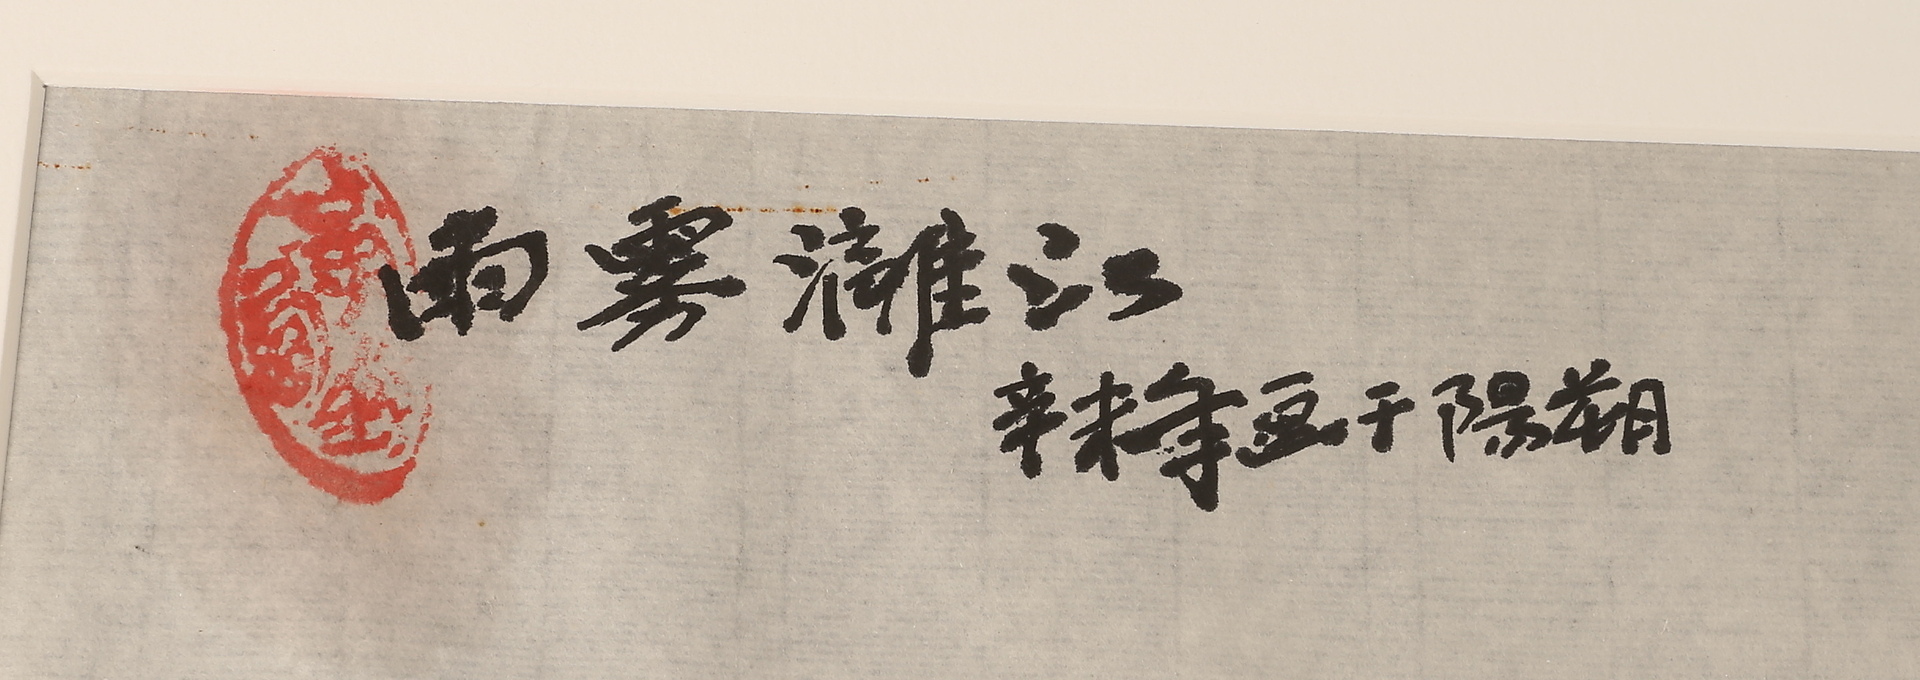 雨雾灕江
辛未年画于陽朔